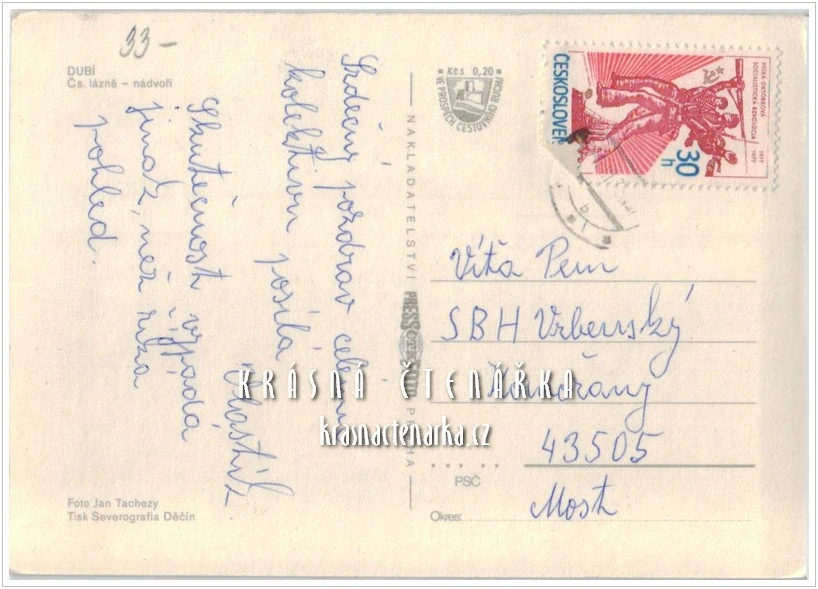 33-
DUBÍ
Čs. lázně - nádvoří
Srdečný pozdrav celému
kolektivu posílá
Vlastik.
Skutečnost vypádá
jinak, než
pohled.
Foto Jan Tachezy
Tisk Severografia Děčín
NAKLADATELSTVÍ PRESSFOTO PRAHA
Kčs 0,20
VE PROSPĚCH CESTOVNÍHO RUCHU
ČESKOSLOVEN
30
h
VELKÁ ŘÍJNOVÁ
SOCIALISTICKÁ REVOLUCE
1917
1977
Víťa
SBH Vrbenský
Komořany
43505
PSČ
Most
Okres:
KRÁSNÁ ČTENÁŘKA
krasnactenarka.cz